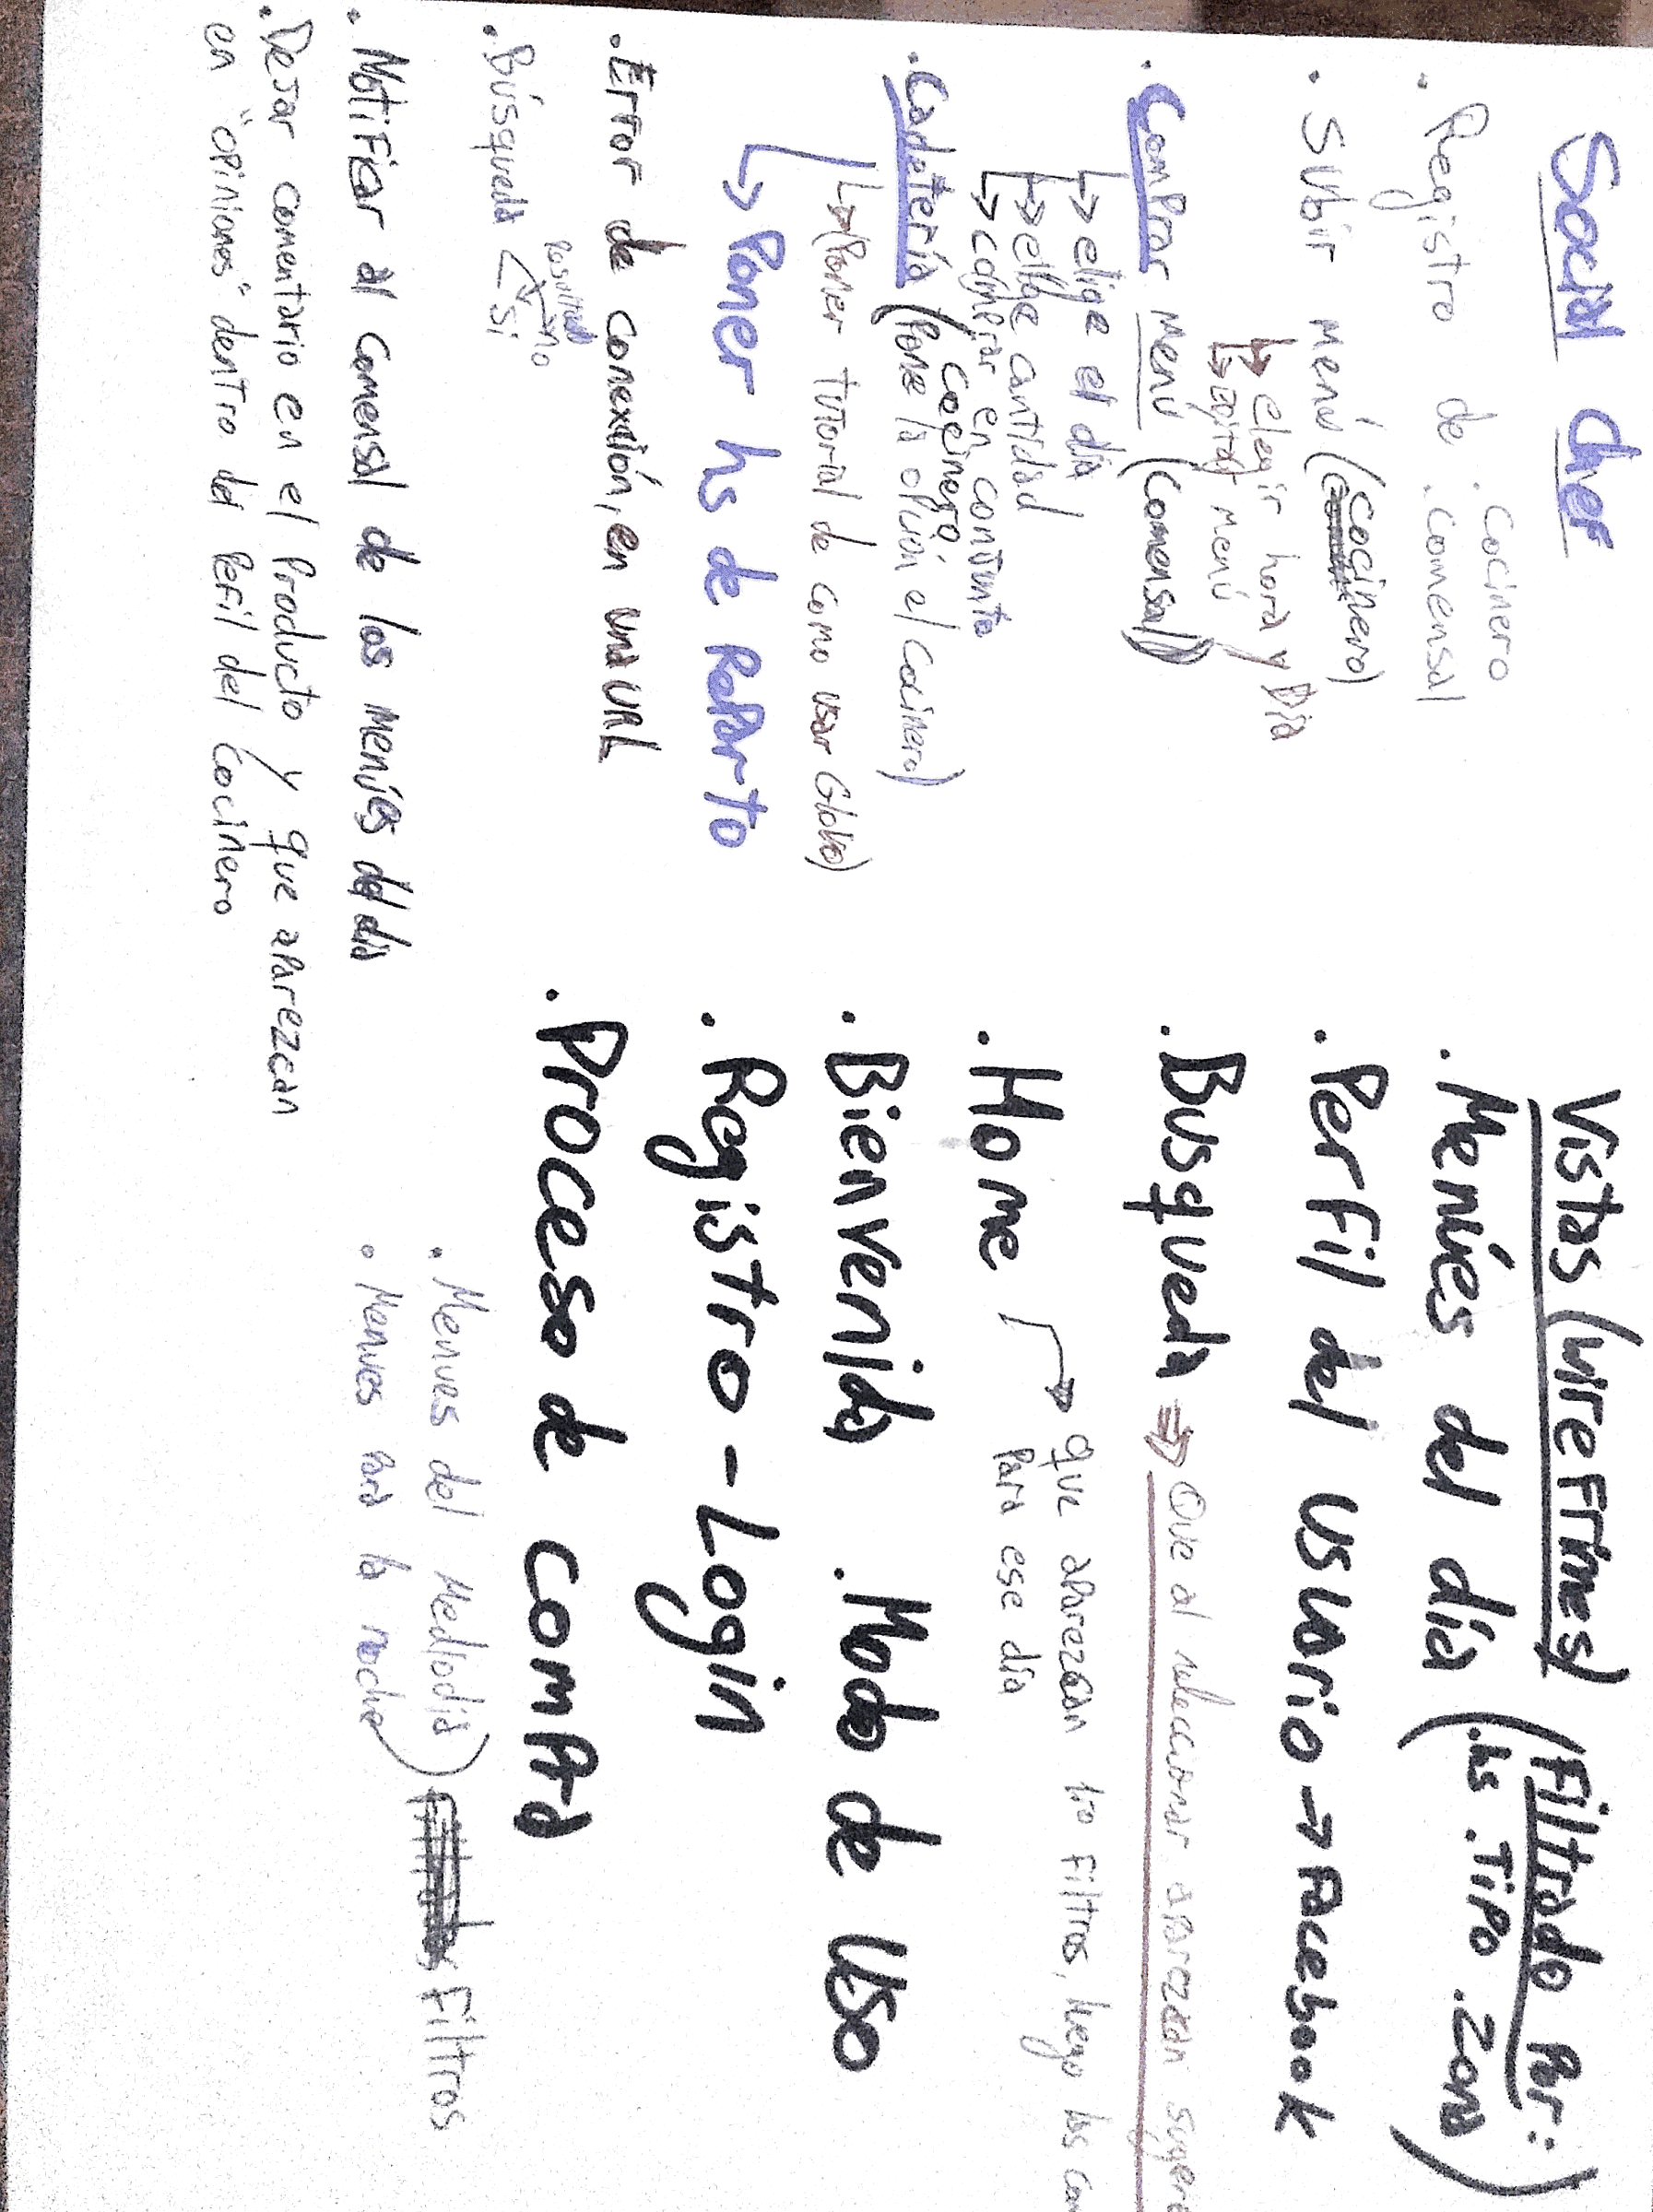 Social chef
. Registro de . cocinero
. comensal
. Subir menú (cocinero)
↳ elegir hora y Día
↳ Editar menú
. Comprar Menú (Comensal)
↳ elige el día
↳ elige cantidad
↳ comprar en conjunto
cocinero.
. Cadetería (Pone la opción el cocinero)
↳ (Poner tutorial de como usar Glovo)
↳ Poner hs de Reparto
. Error de conexión, en una URL
. Búsqueda < Resultado no
si
. Notificar al comensal de los menúes del día
. Dejar comentario en el Producto y que aparezcan
en "opiniones" dentro del Perfil del Cocinero
Vistas (Wireframes)
. Menúes del día (Filtrado Por:
. hs . Tipo . Zona)
. Perfil del usuario → Facebook
. Busqueda ⇒ Que al seleccionar aparezcan
. Home
→ que aparezcan los filtros, luego las
Para ese día
. Bienvenida . Modo de Uso
. Registro - Login
. Proceso de compra
. Menues del Mediodía) Filtros
. Menues para la noche